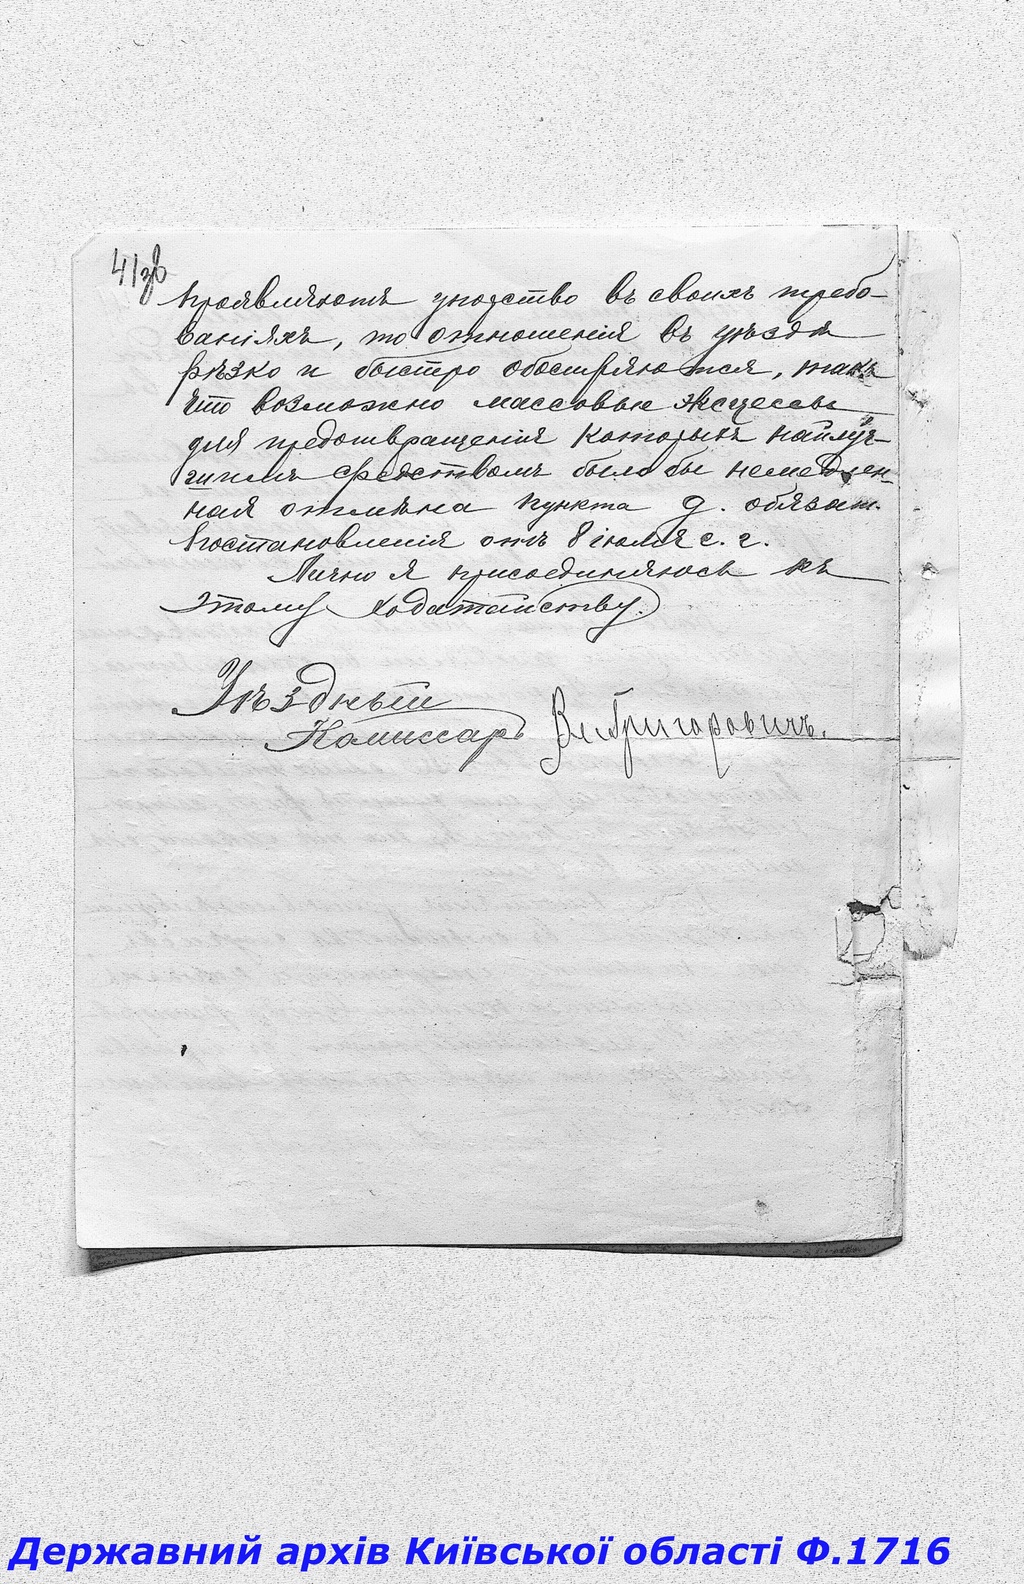 41зв
проявляютъ упорство въ своихъ требо-
ваніяхъ, то отношенія въ уѣздѣ
рѣзко и быстро обостряются, такъ
что возможно массовые эксцессы
для предотвращенія которыхъ наилуч-
шимъ средствомъ было бы немедлен-
ная отмѣна пункта д. обязат.
постановленія отъ 8 іюля с. г.
Лично я присоединяюсь къ
этому ходатайству.
Уѣздный
Комиссаръ Вл. Григоровичъ.
Державний архів Київської області Ф.1716